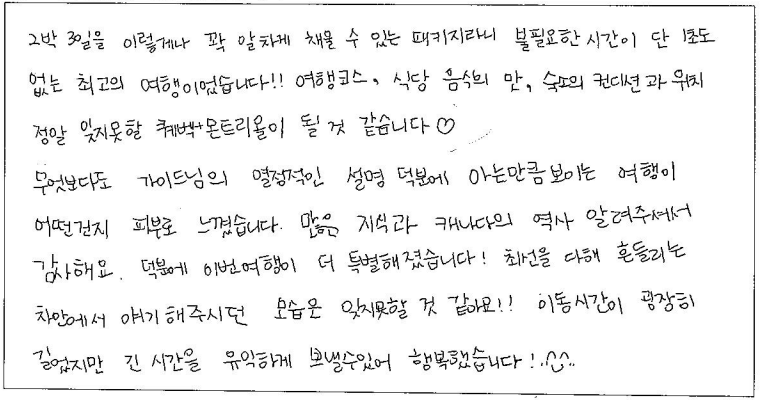 2박 3일을 이렇게나 꽉 알차게 채울 수 있는 패키지라니 불필요한 시간이 단 1초도
없는 최고의 여행이었습니다!! 여행코스, 식당 음식의 맛, 숙소의 컨디션과 위치
정말 잊지못할 퀘벡+몬트리올이 될 것 같습니다♡
무엇보다도 가이드님의 열정적인 설명 덕분에 아는만큼보이는 여행이
어떤건지 피부로 느꼈습니다. 많은 지식과 캐나다의 역사 알려주셔서
감사해요. 덕분에 이번여행이 더 특별해졌습니다! 최선을 다해 흔들리는
차안에서 얘기해주시던 모습은 잊지못할 것 같아요!! 이동시간이 굉장히
길었지만 긴 시간을 유익하게 보낼수있어 행복했습니다!